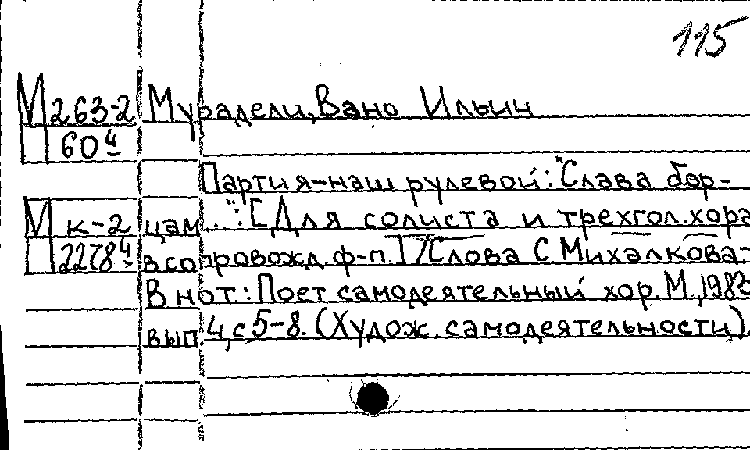 115
М 263-2 Мурадели, Вано Ильич
П 60 ч
Партия-наш рулевой: "Слава бор-
М к-2 цам...": [Для солиста и трехгол. хора
П 2278 ч в сопровожд. ф-п.] / Слова С. Михалкова-
В нот: Поет самодеятельный хор. М., 1982
вып. 4, с 5-8. (Худож. самодеятельности).